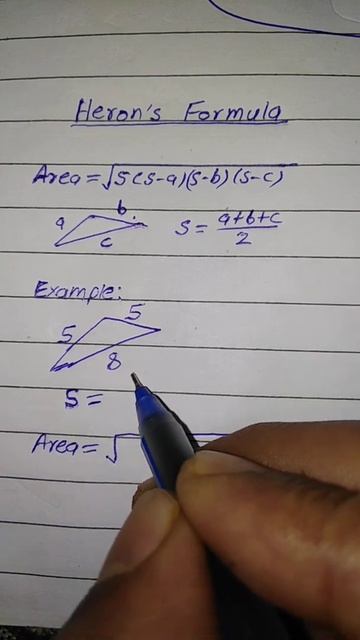 Heron's Formula
Area = √s(s-a)(s-b)(s-c)
a b c
s = a+b+c/2
Example:
5 5 8
s =
Area = √